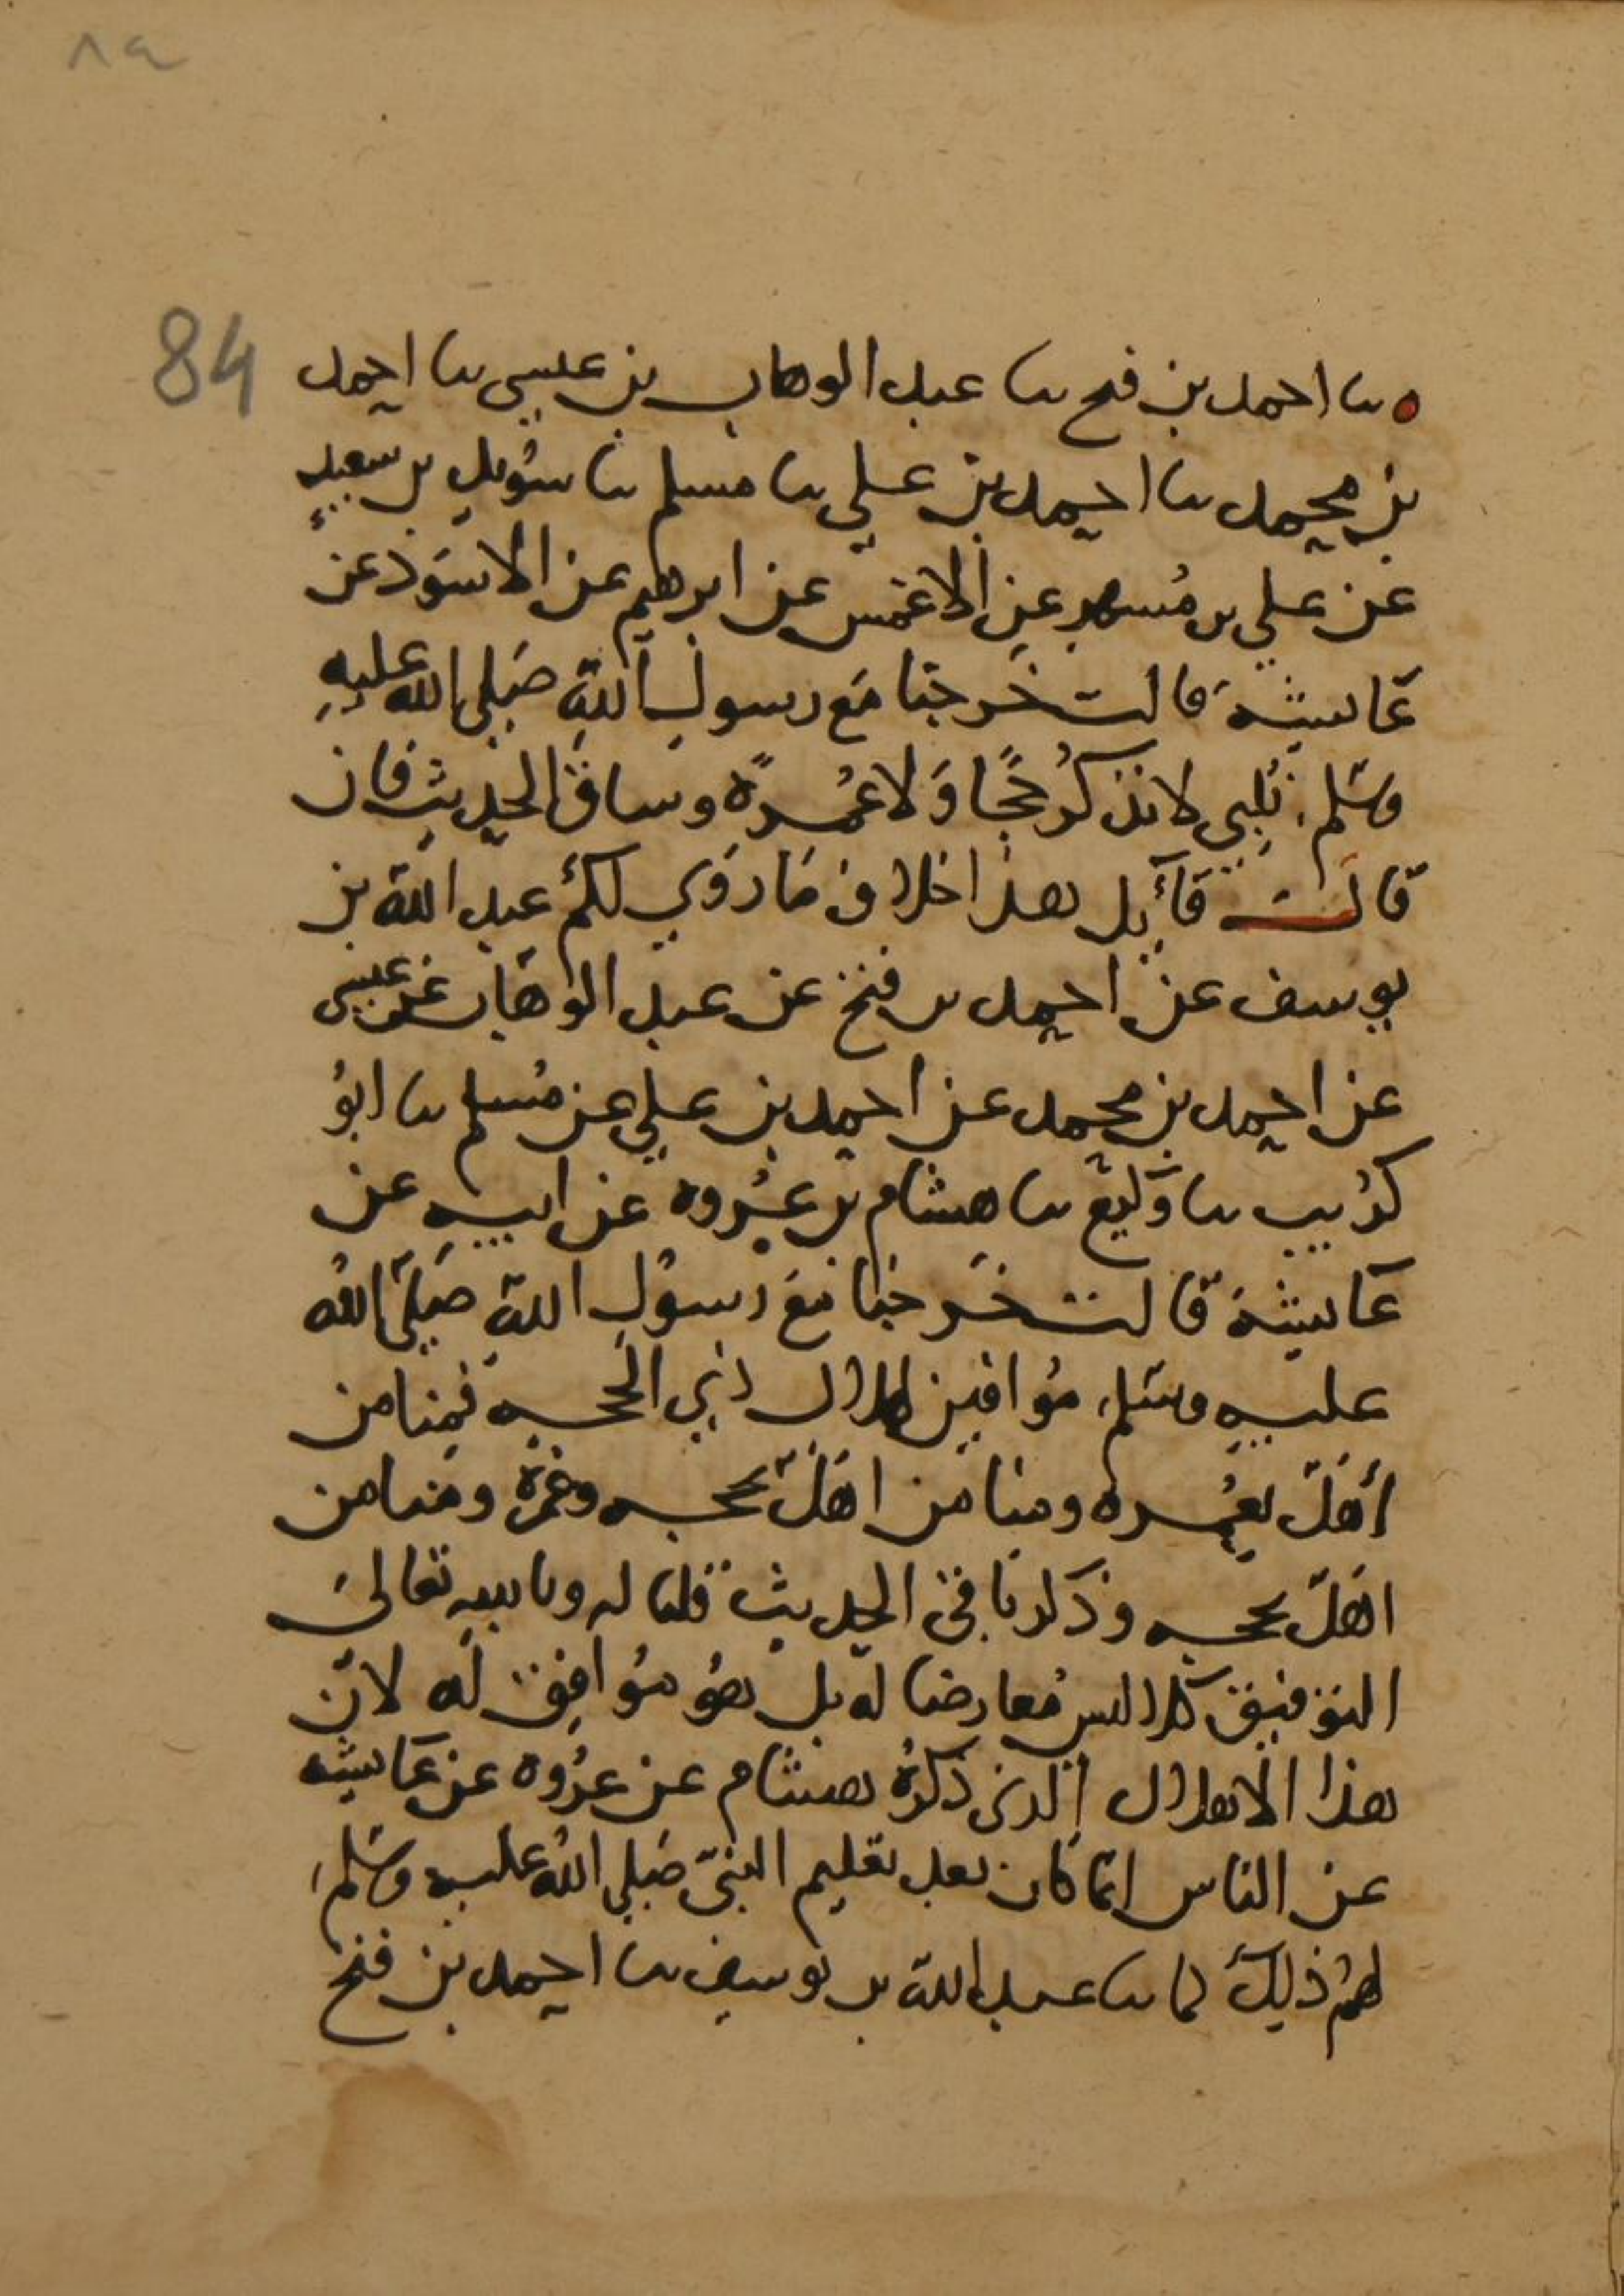 ٨٩
84
ثنا احمد بن فتح ثنا عبد الوهاب بن عيسى ثنا احمد
بن محمد ثنا احمد بن علي ثنا مسلم ثنا سُويد بن سعيدٍ
عن علي بن مُسهرٍ عن الاعمش عن ابرهيم عن الاسوَد عن
عَايشة قالت خَرجنا مَع رسول اللهِ صَلى الله عليهِ
وسَلم نُلبي لا نذكرُ حَجًا وَلا عُمرةً وساق الحديث فان
قَال قَآئِل هذا خلاف مَا رَوَي لكمُ عبد الله بن
يوسف عن احمد بن فتح عن عبد الوهَاب بن عيسى
عن احمد بن محمد عن احمد بن علي عن مُسلم ثنا ابوُ
كرُيب ثنا وَكيع ثنا هشام بن عُروه عن ابيهِ عن
عَايشة قَالت خَرجنا مَعَ رسوُل اللهِ صَلَى اللهُ
عليه وسَلم مُوافين لهلال ذي الحجه فمِنا من
أهَلّ بعُمره ومنا من اهَلّ بحجه وعُمرة ومنا من
اهَلّ بحجه وذكر باقي الحديث قلنا له وبالله تعالىَ
التوَفيق كلا ليس مُعارضا له بل هوُ مُوافِق لَه لانّ
هذا الاهلال الذي ذكرهُ هشام عن عرُوه عن عَايشه
عن الناس انمّا كان بعد تعليم النبيّ صَلى اللهُ عليه وسَلم
لهُم ذلِكَ كما ثنا عبد الله بن يوسف ثنا احمد بن فتح